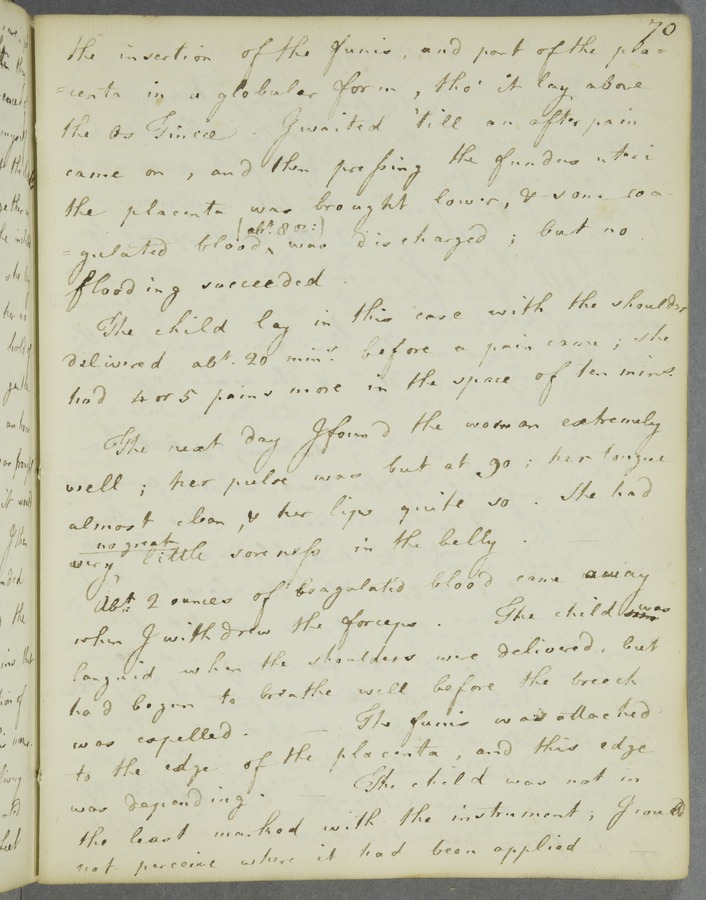 70
the insertion of the funis, and part of the pla=
=centa in a globular form, tho' it lay above
the Os Tincæ. I waited 'till an after pain
came on, and then pressing the fundus uteri
the placenta was brought lower, & some coa=
(abt. 8 oz:)
=gulated blood, was discharged; but no
flooding succeeded.
The child lay in this case with the shoulders
delivered abt. 20 mins. before a pain came; she
had 4 or 5 pains more in the space of ten mins.
The next day I found the woman extremely
well; her pulse was but at 90; her tongue
almost clean, & her lips quite so. She had
no great
very little soreness in the belly.
Abt. 2 ounces of coagulated blood came away
when I withdrew the forceps. The child was
languid when the shoulders were delivered, but
had begun to breathe well before the breech
was expelled. The funis was attached
to the edge of the placenta, and this edge
was depending. The child was not in
the least marked with the instrument; I could
not perceive where it had been applied